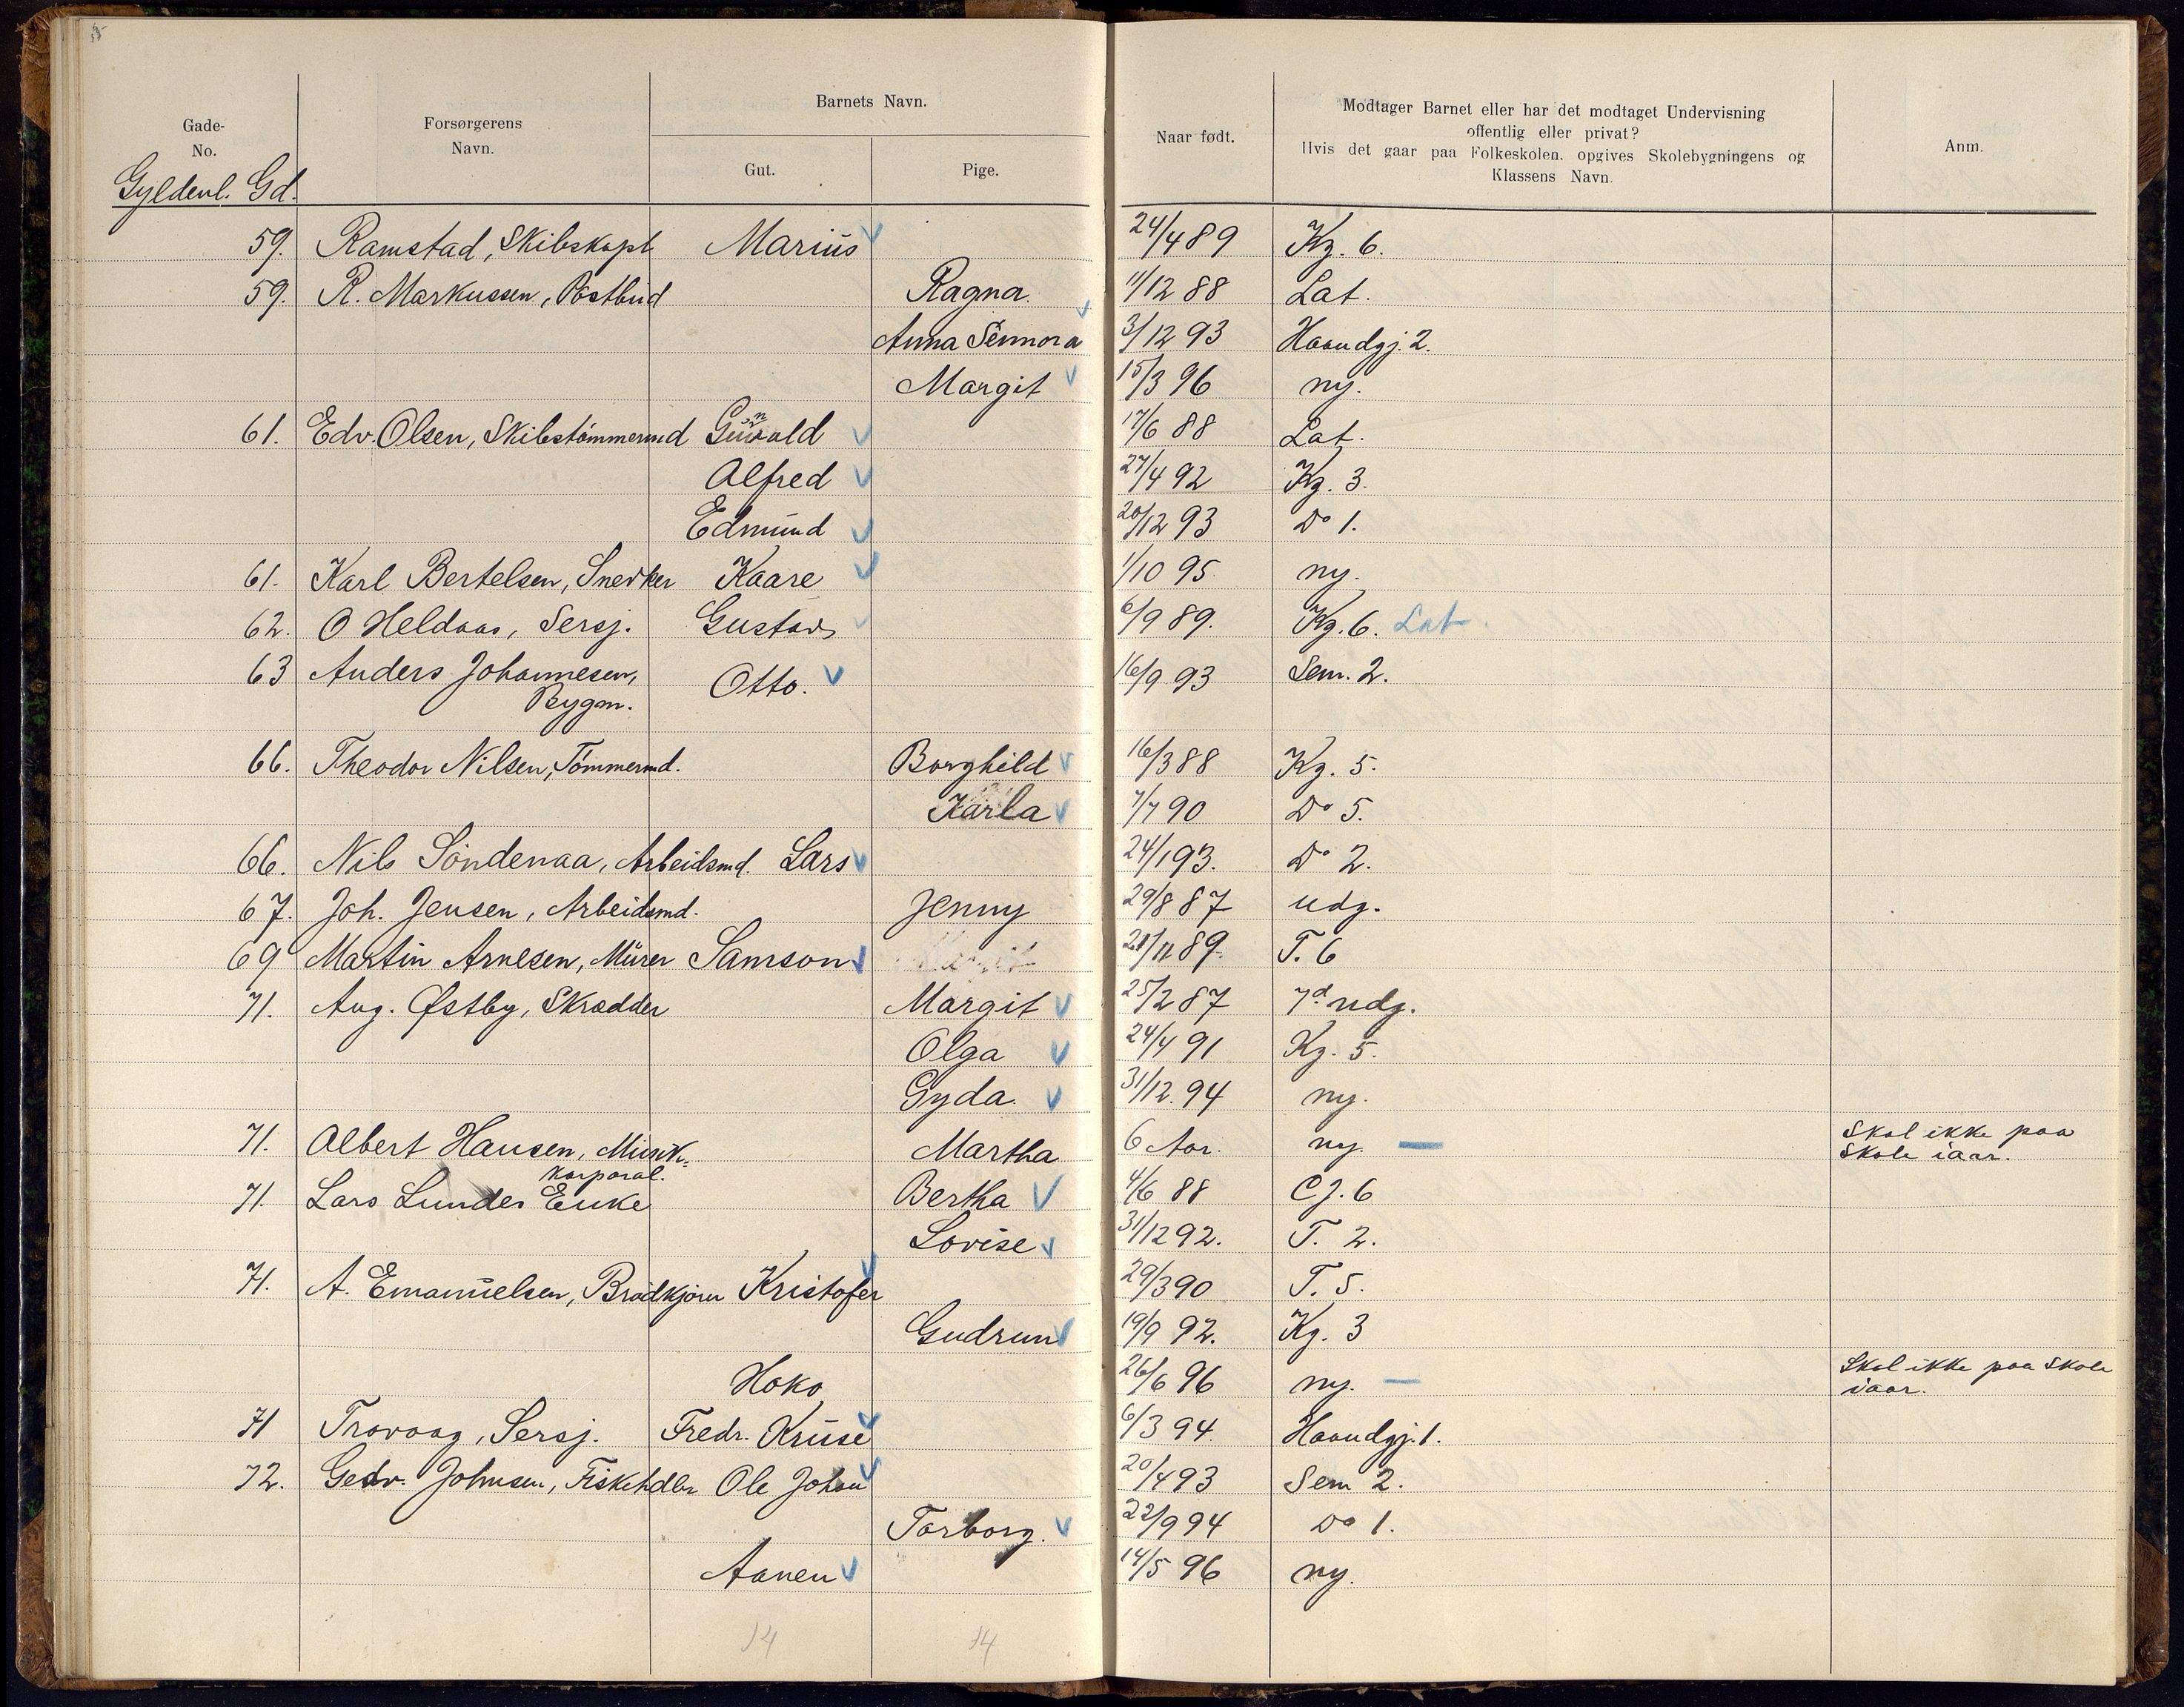 Gade-
No.
Forsørgerens
Navn.
Barnets Navn.
Gut.
Pige.
Naar født.
Modtager Barnet eller har det modtaget Undervisning
offentlig eller privat?
Hvis det gaar paa Folkeskolen. opgives Skolebygningens og
Klassens Navn.
Anm.
Gyldenl. Gd.
59. Ramstad, Skibskapt Marius 24/4 89 Kg. 6.
59. R. Markussen, Postbud Ragna 11/12 88 Lat.
Anna Sennora 3/12 93 Haandgj. 2.
Margit 15/3 96 ny.
61. Edv. Olsen, Skibstömmermd 17/6 88 Lat.
Alfred 27/4 92 Kg. 3.
Edmund 20/12 93 Do 1.
61. Karl Bertelsen, Snedker Kaare 1/10 95 ny.
62. O Heldaas, Sersj. Gustav 6/9 89. Kg. 6. Lat
63 Anders Johannesen, Otto. 16/9 93 Sem. 2.
Bygm.
66. Theodor Nilsen, Tömmermd. Borghild 16/3 88 Kg. 5.
Karla 7/7 90 Do 5.
66. Nils Söndenaa, Arbeidsmd. Lars 24/1 93. Do 2.
67. Joh. Jensen, Arbeidsmd. Jenny 29/8 87 udg.
69 Martin Arnesen, Murer Samson 21/11 89. T. 6
71. Aug. Østby, Skrædder Margit 25/2 87 7d udg.
Olga 24/4 91 Kg. 5.
Gyda 31/12. 94 ny.
71. Albert Hansen, Musik- Martha 6 Aar. ny. — Skal ikke paa
korporal. Skole iaar.
71. Lars Lundes Enke Bertha 4/6 88 CJ. 6
Lovise 31/12 92. T. 2.
71. A. Emanuelsen, Brödkjörer Kristofer 29/3 90 T. 5.
Gudrun 19/9 92. Kg. 3
Hoko 26/6 96 ny. — Skal ikke paa Skole
iaar.
71 Travaag, Sersj. Fredr. Kruse 6/3 94 Haandgj. 1.
72. Johnsen, Fiskehdlr Ole Johan 20/4 93 Sem 2.
Torborg. 22/9 94 Do 1.
Aanen 14/5 96 ny.
14 14